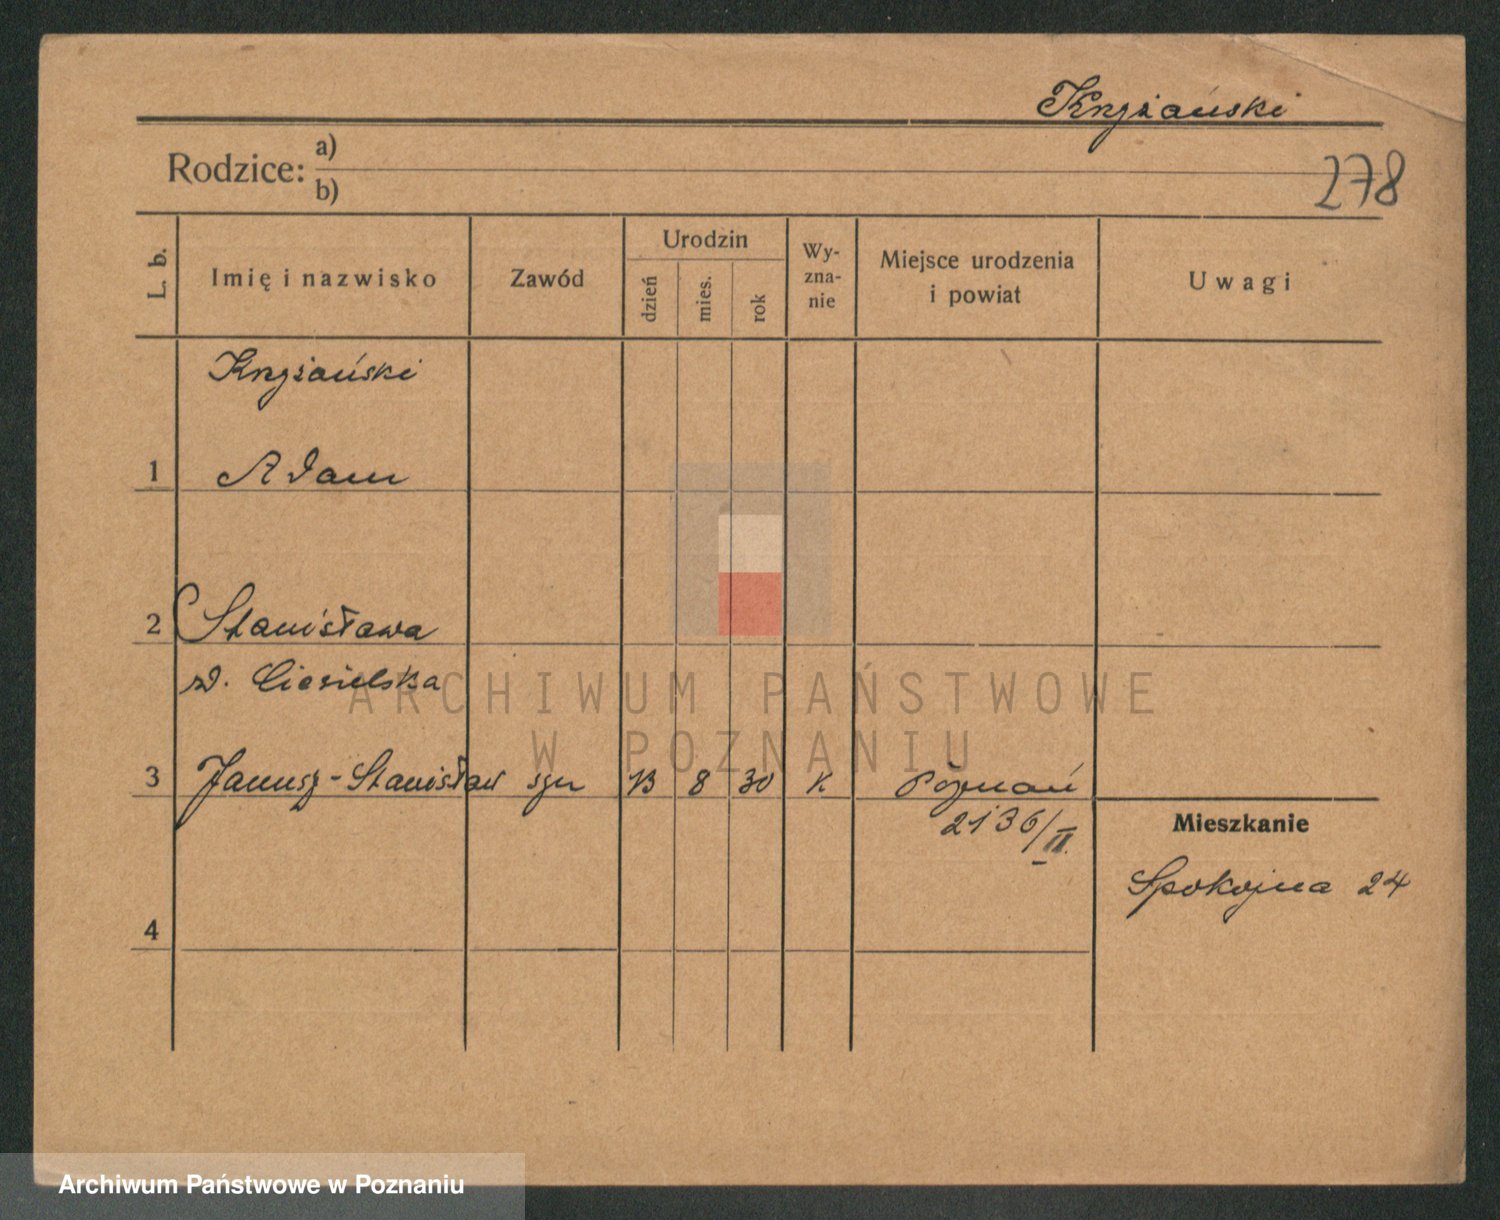 Krzyżański
Rodzice: a)
b)
278
L. b.
Imię i nazwisko
Zawód
Urodzin
dzień
mies.
rok
Wy-
zna-
nie
Miejsce urodzenia
i powiat
Uwagi
Krzyżański
1 Adam
2 Stanisława
Ciesielska
3 Janusz-Stanisław syn 13 8 30 K Poznań
2136/II.
Mieszkanie
Spokojna 24
4
ARCHIWUM PAŃSTWOWE
W POZNANIU
Archiwum Państwowe w Poznaniu